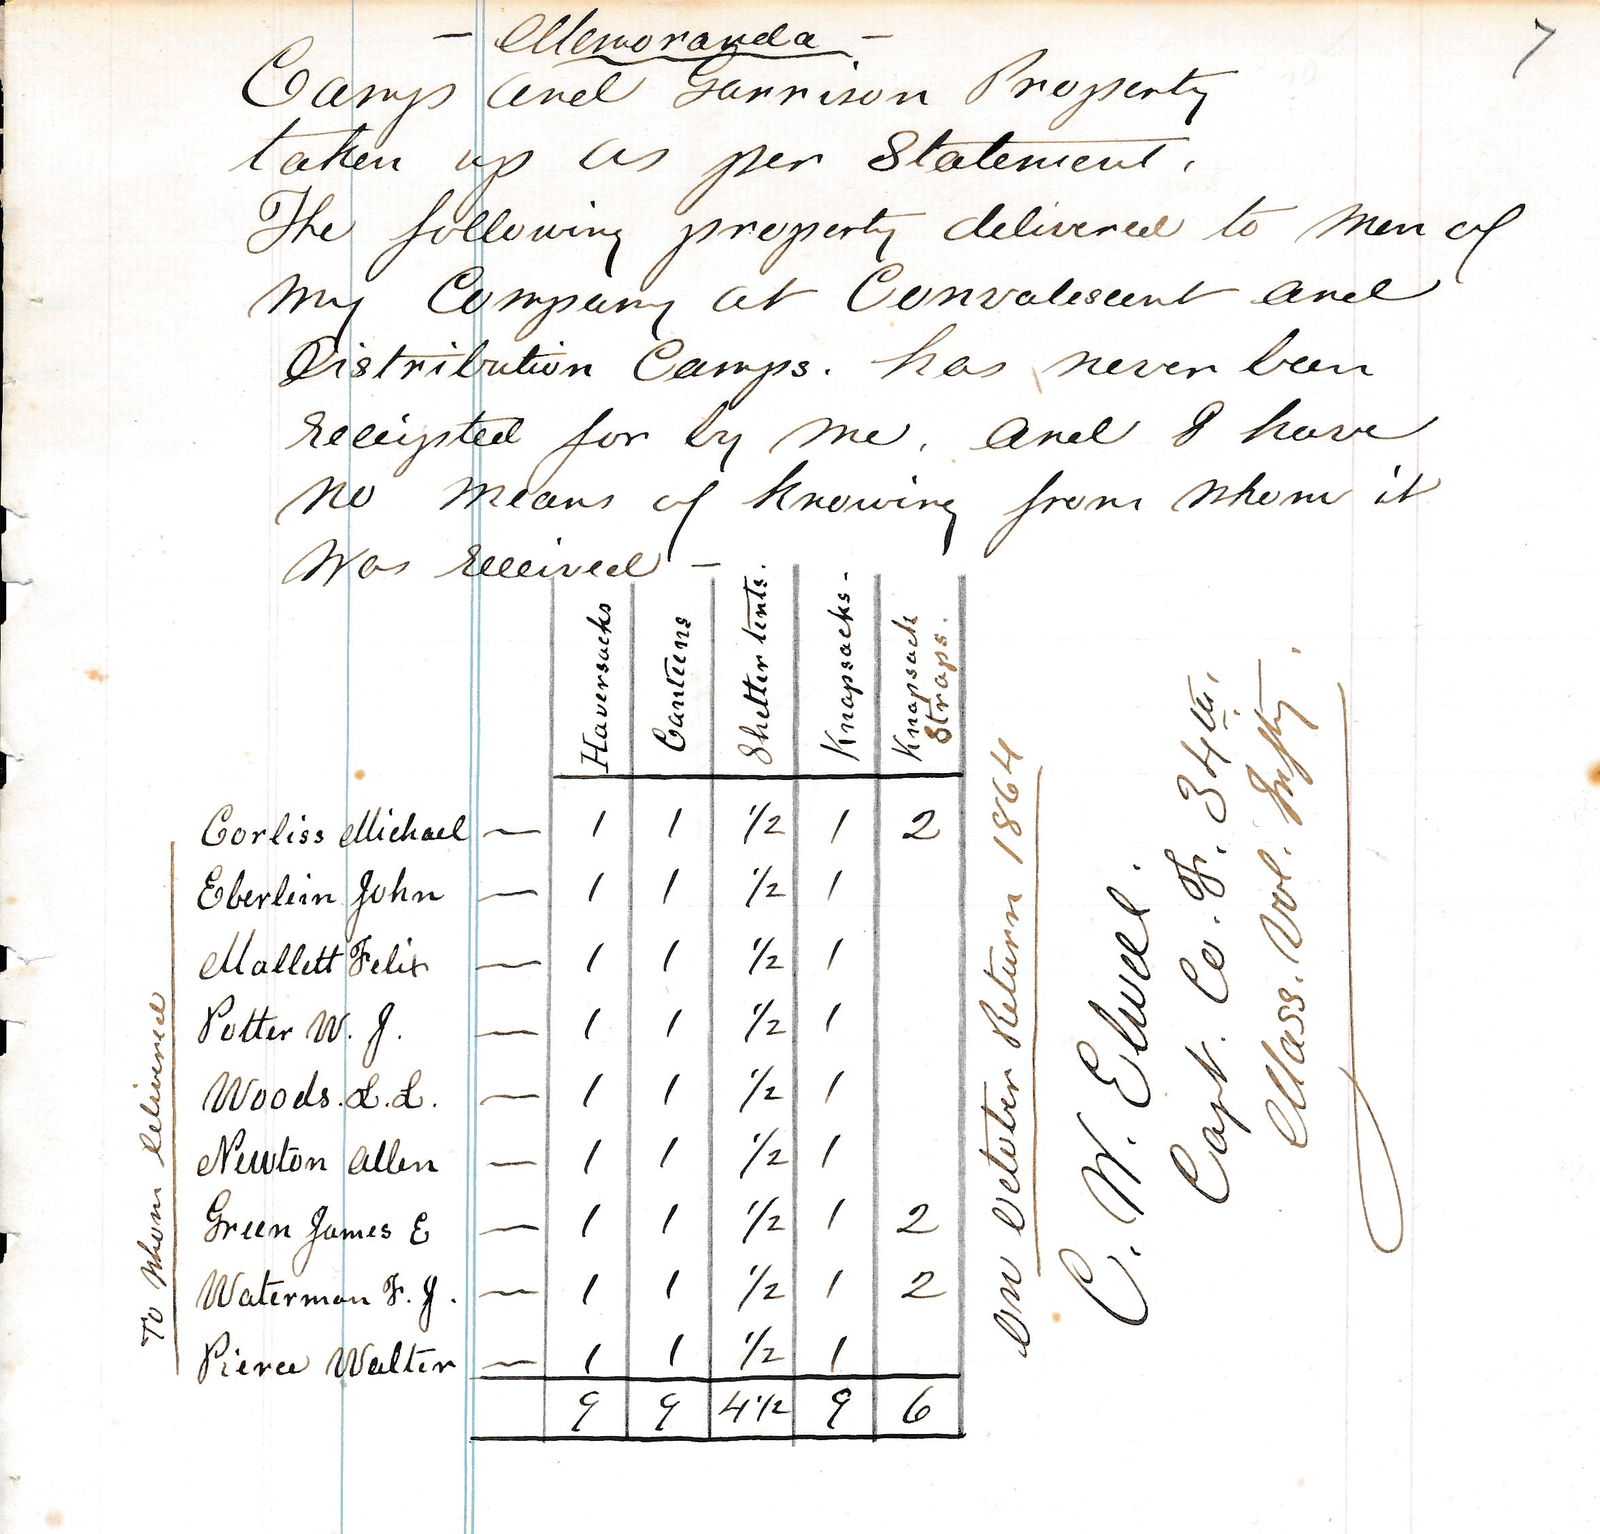 7
— Memoranda —
Camp and Garrison Property
taken up as per Statement.
The following property delivered to men of
my Company at Convalescent and
Distribution Camps. has never been
receipted for by me, and I have
no means of knowing from whom it
was received —
Haversacks
Canteens
Shelter tents.
Knapsacks.
Knapsack
Straps.
To whom delivered
Corliss Michael — 1 1 1/2 1 2
Eberlein John — 1 1 1/2 1
Mallett Felix — 1 1 1/2 1
Potter W. J. — 1 1 1/2 1
Woods. L. L. — 1 1 1/2 1
Newton Allen — 1 1 1/2 1
Green James E — 1 1 1/2 1 2
Waterman F. J. — 1 1 1/2 1 2
Pierce Walter — 1 1 1/2 1
9 9 4 1/2 9 6
On October Return 1864
C. W. Elwell.
Capt. Co. F. 34th.
Mass. Vol. Infty.